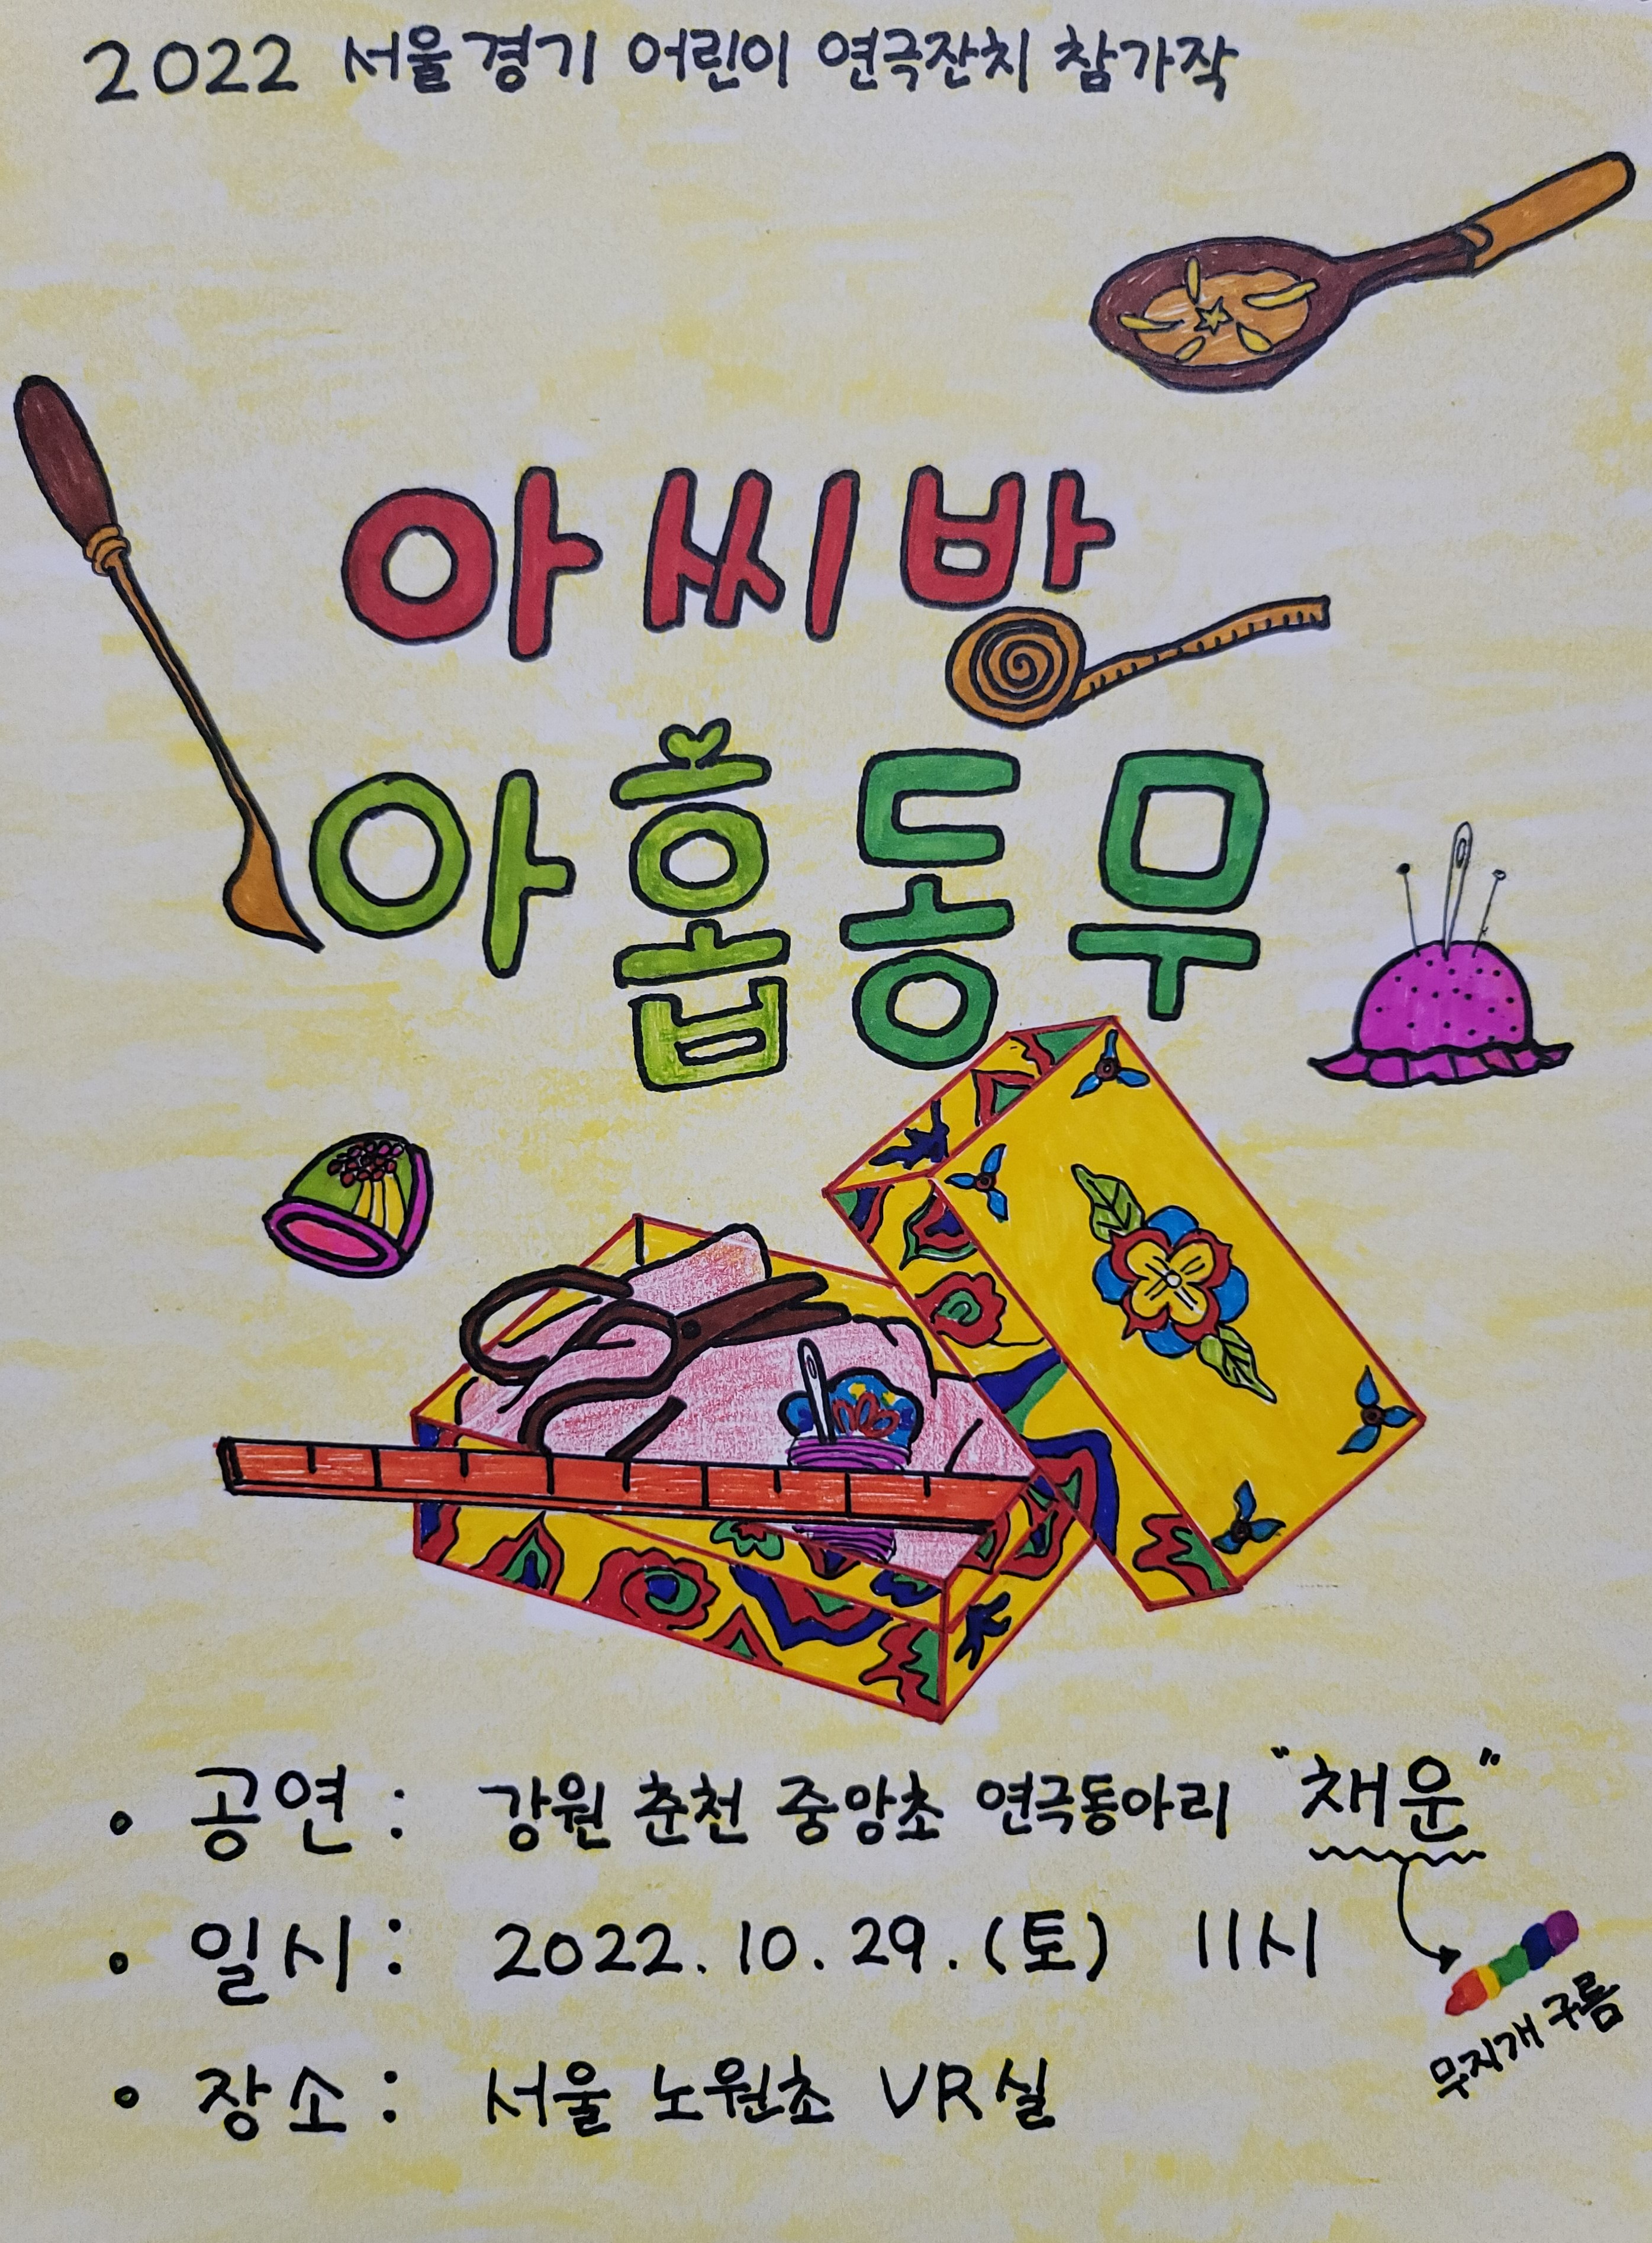 2022 서울경기 어린이 연극잔치 참가작
아씨방
아홉동무
• 공연 : 강원 춘천 중앙초 연극동아리 "채운"
• 일시 : 2022. 10. 29. (토) 11시
무지개 구름
• 장소 : 서울 노원초 VR실